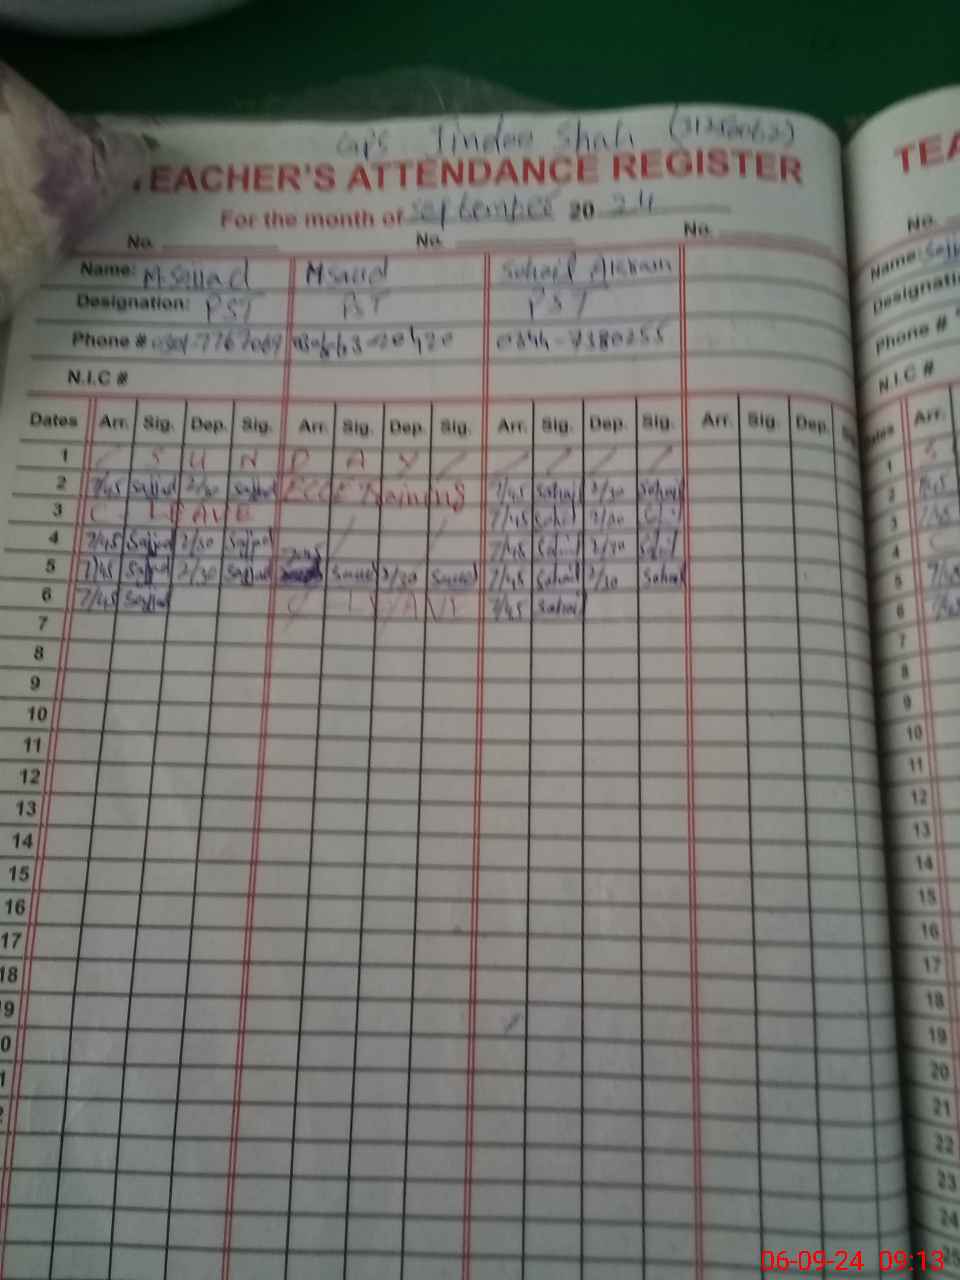 GPS Jindoo Shah
TEACHER'S ATTENDANCE REGISTER TEA
For the month of September 20 24
No. No. No. No.
Name: M. Sajjad M Saeed Sohail Akram Name:
Designation: PST PST PST
Phone # 0344-7380255 Phone #
N.I.C # N.I.C #
Dates Arr. Sig. Dep. Sig. Arr. Sig. Dep. Sig. Arr. Sig. Dep. Sig. Arr. Sig. Dep. Arr.
1 S U N D A Y 1 S
2 7/45 Sajjad 2/30 Sajjad ECCE Training 7/45 Sohail 2/30 Sohail 2
3 C - LEAVE 7/45 Sohail 2/30 Sohail 3
4 7/45 Sajjad 2/30 Sajjad 7/45 Sohail 2/30 Sohail 4
5 7/45 Sajjad 2/30 Sajjad 7/45 Saeed 2/30 Saeed 7/45 Sohail 2/30 Sohail 5
6 7/45 Sajjad C / LEAVE 7/45 Sohail 6
7 7
8 8
9 9
10 10
11 11
12 12
13 13
14 14
15 15
16 16
17 17
18 18
9 19
0 20
1 21
2 22
23
24
06-09-24 09:13